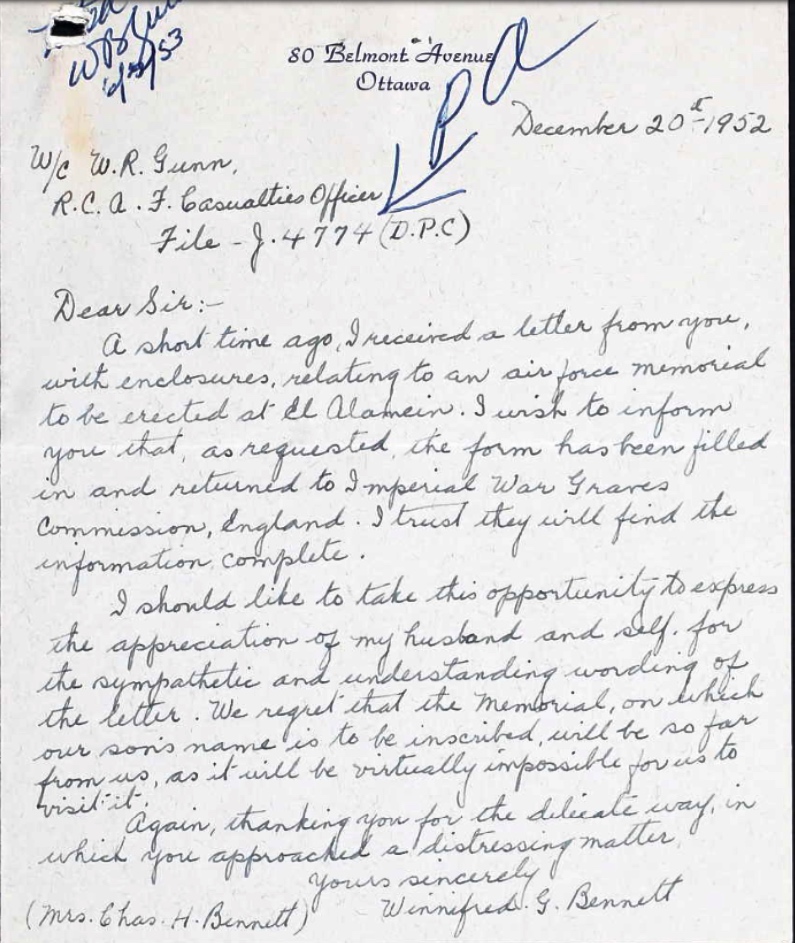 80 Belmont Avenue
Ottawa
P A
December 20th 1952
W/c W.R. Gunn,
R.C.A.F. Casualties Officer
File - J.4774 (D.P.C)
Dear Sir:-
A short time ago, I received a letter from you,
with enclosures, relating to an air force memorial
to be erected at El Alamein. I wish to inform
you that, as requested, the form has been filled
in and returned to Imperial War Graves
Commission, England. I trust they will find the
information complete.
I should like to take this opportunity to express
the appreciation of my husband and self, for
the sympathetic and understanding wording of
the letter. We regret that the Memorial, on which
our son's name is to be inscribed, will be so far
from us, as it will be virtually impossible for us to
visit it.
Again, thanking you for the delicate way, in
which you approached a distressing matter,
yours sincerely
(Mrs. Chas. H. Bennett) Winnifred G. Bennett